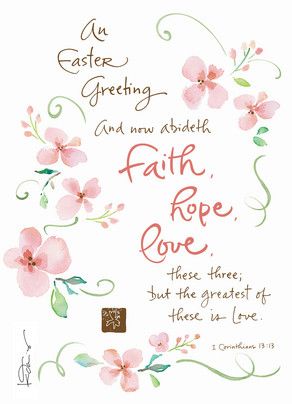 An
Easter
Greeting
And now abideth
faith,
hope,
love,
these three;
but the greatest of
these is love.
I Corinthians 13:13